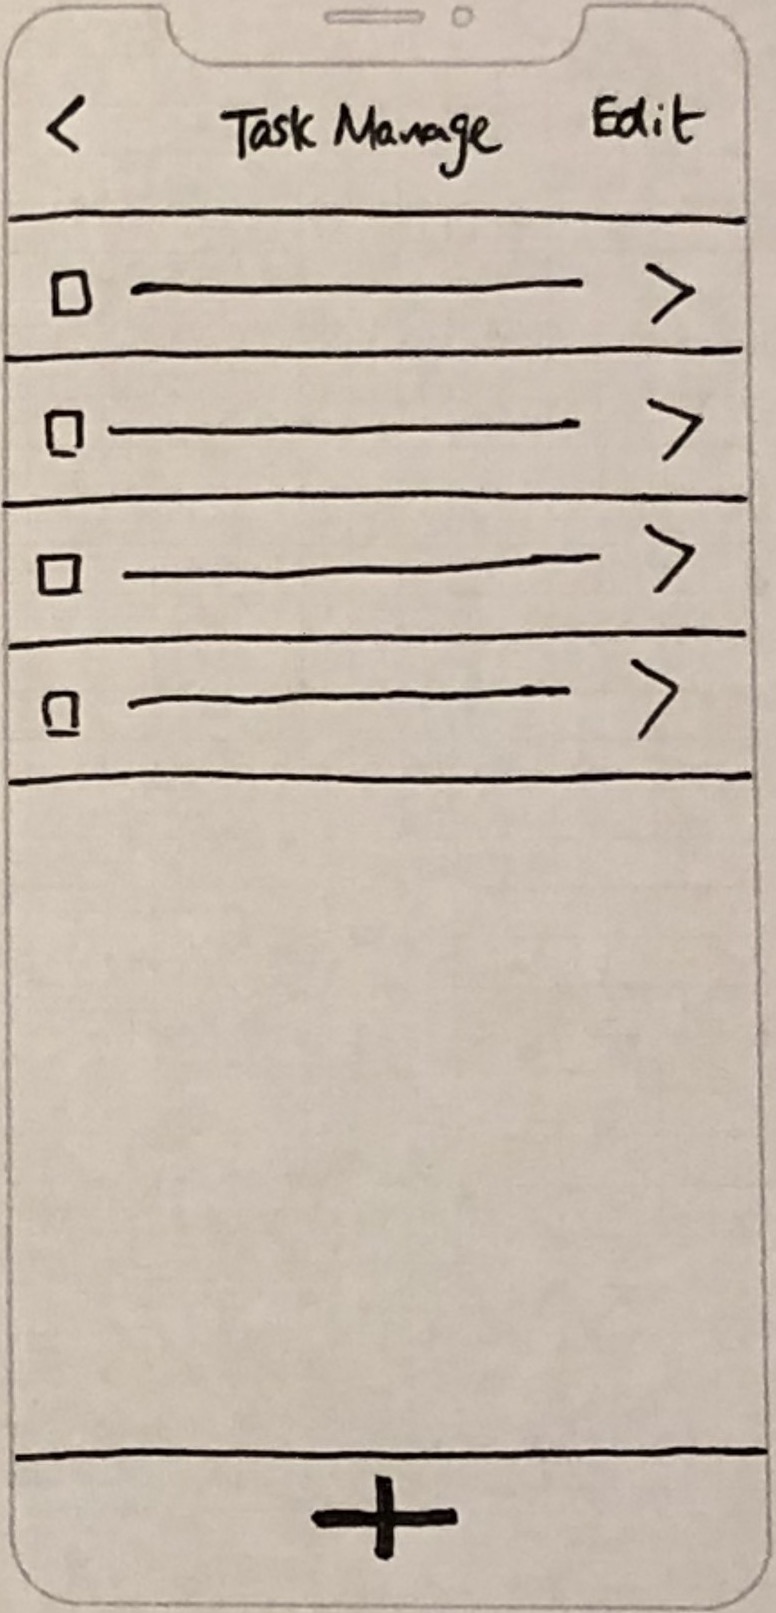 < Task Manage Edit
>
>
>
>
+